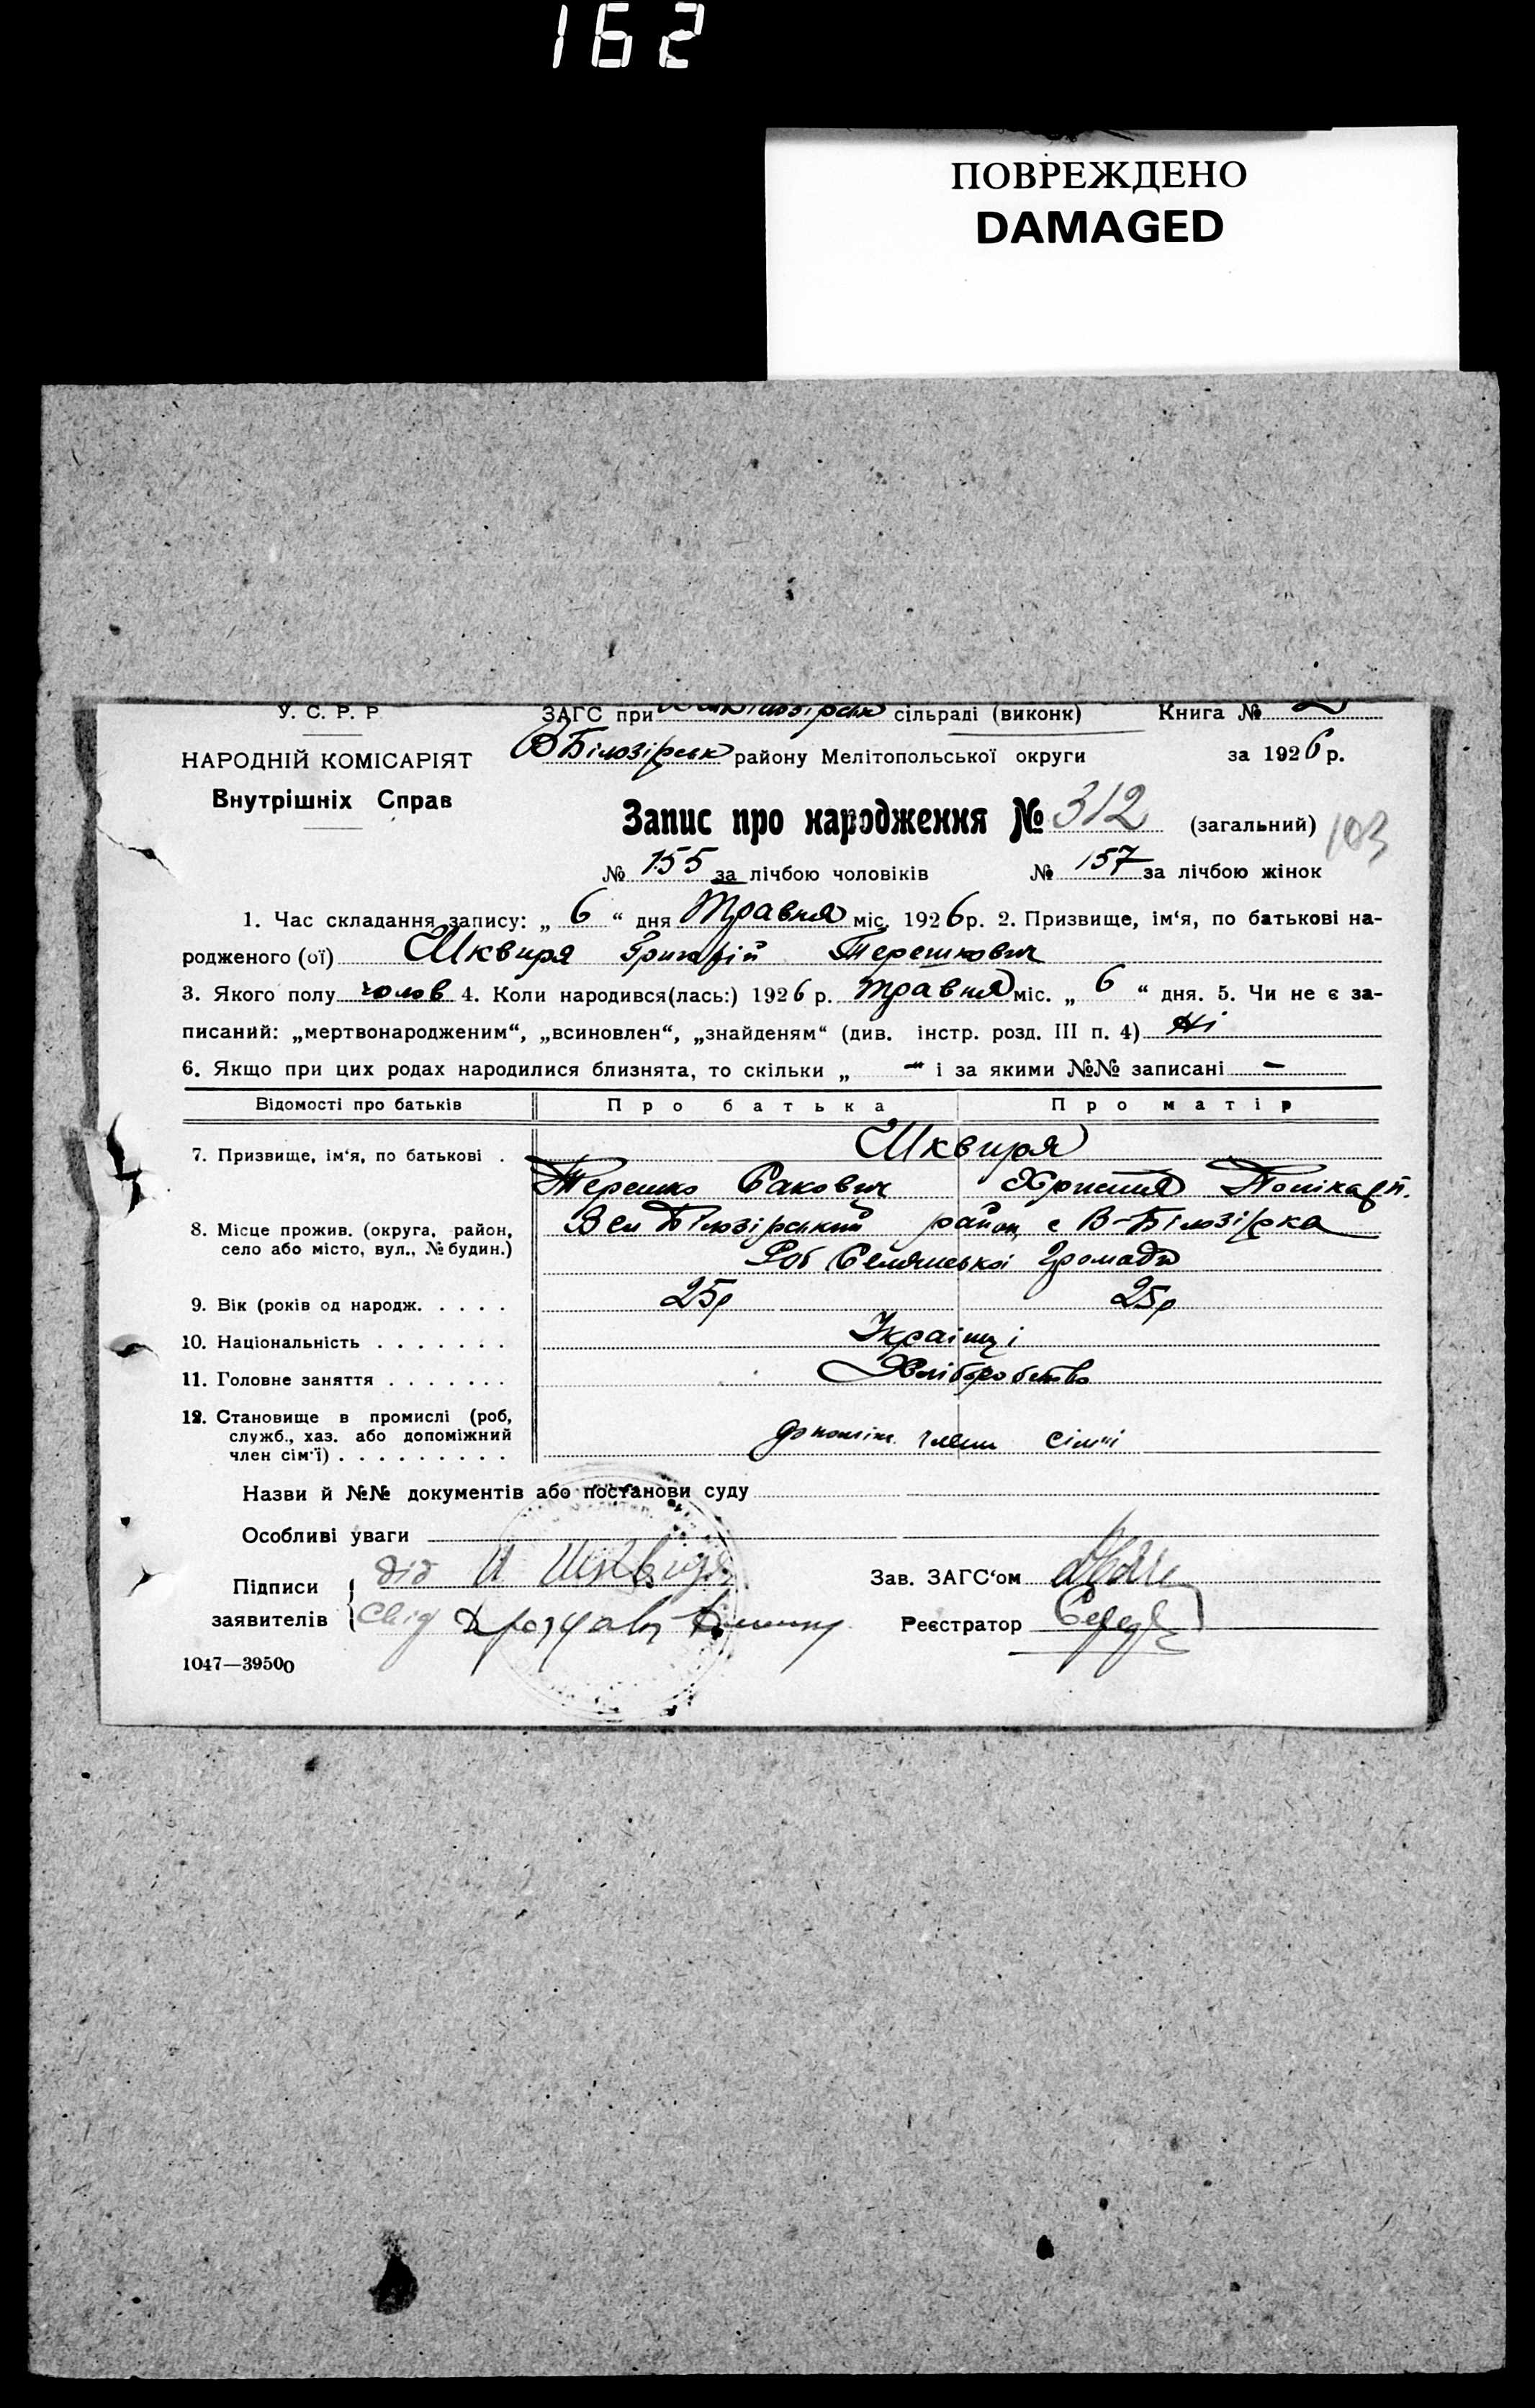 162
ПОВРЕЖДЕНО
DAMAGED
У. С. Р. Р
ЗАГС при сільраді (виконк) Книга № 2
НАРОДНІЙ КОМІСАРІЯТ
В Білозірськ району Мелітопольської округи за 1926 р.
Внутрішніх Справ
Запис про народження № 312 (загальний) 103
№ 155 за лічбою чоловіків № 157 за лічбою жінок
1. Час складання запису: „ 6 “ дня Травня міс. 1926 р. 2. Призвище, ім‘я, по батькові на-
родженого (ої) Шквиря Григорій Терешкович
3. Якого полу чолов 4. Коли народився(лась:) 1926 р. Травня міс. „ 6 “ дня. 5. Чи не є за-
писаний: „мертвонародженим“, „всиновлен“, „знайденям“ (див. інстр. розд. III п. 4) Ні
6. Якщо при цих родах народилися близнята, то скільки „ — “ і за якими №№ записані —
Відомості про батьків Про батька Про матір
7. Призвище, ім‘я, по батькові . Шквиря
Терешко Сакович Христина Полікарп.
8. Місце прожив. (округа, район, Вел Білозірський район с В-Білозірка
село або місто, вул., № будин.) Селянської Громади
9. Вік (років од народж. . . . . 25р 25р
10. Національність . . . . . . . Українці
11. Головне заняття . . . . . . . Хліборобство
12. Становище в промислі (роб,
служб., хаз. або допоміжний допоміжн. члени сім'ї
член сім'ї) . . . . . . . . .
Назви й №№ документів або постанови суду
Особливі уваги
Підписи дід Шквиря Зав. ЗАГС‘ом
заявителів свід Реєстратор
1047—39500